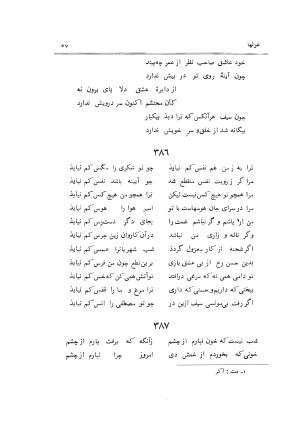 غزلها
۵۷
خود عاشق صاحب نظر از عمر چه بیند
چون آینهٔ روی تو در پیش ندارد
از دایرهٔ عشق دلا پای برون نه
کان محتشم اکنون سر درویش ندارد
چون سیف هرآنکس که ترا دید بیکبار
بیگانه شد از خلق و سر خویش ندارد
۳۸۶
ترا به ز من هم نفس کم نیاید
چو تو شکری را مگس کم نیاید
مرا گر ز رویت نفس منقطع شد
چو آیینه باشد نفس کم نیاید
مرا همچو تو هیچ کس نیست لیکن
ترا همچو من هیچ کس کم نیاید
مرا در سرای جان هوسهاست با تو
اسیر هوا را هوس کم نیاید
من ار باشم و گر نباشم غمت را
بجای دگر دست رس کم نیاید
وگر ناله و زاری من نباشد
در آن کاروان زین جرس کم نیاید
اگر شحنه از کار معزول گردد
شب شهریانرا عسس کم نیاید
بدین حسن رخ از پی عشق بازی
برین نطع چون من فرس کم نیاید
تو دامی همی نه که مرغی درافتد
تو آتش همی کن که خس کم نیاید
بیخی که داریم و حسنی که داری
ترا مرغ و ما را قفس کم نیاید
اگر رفت بی مونسی سیف ازین در
چو تو مصطفی را انس کم نیاید
۳۸۷
شب نیست که خون نبارم از چشم
زآنگه که برفت یارم از چشم
خونی که بخوردم از غمش دی
امروز چرا نبارم از چشم
۱- مت: اگر